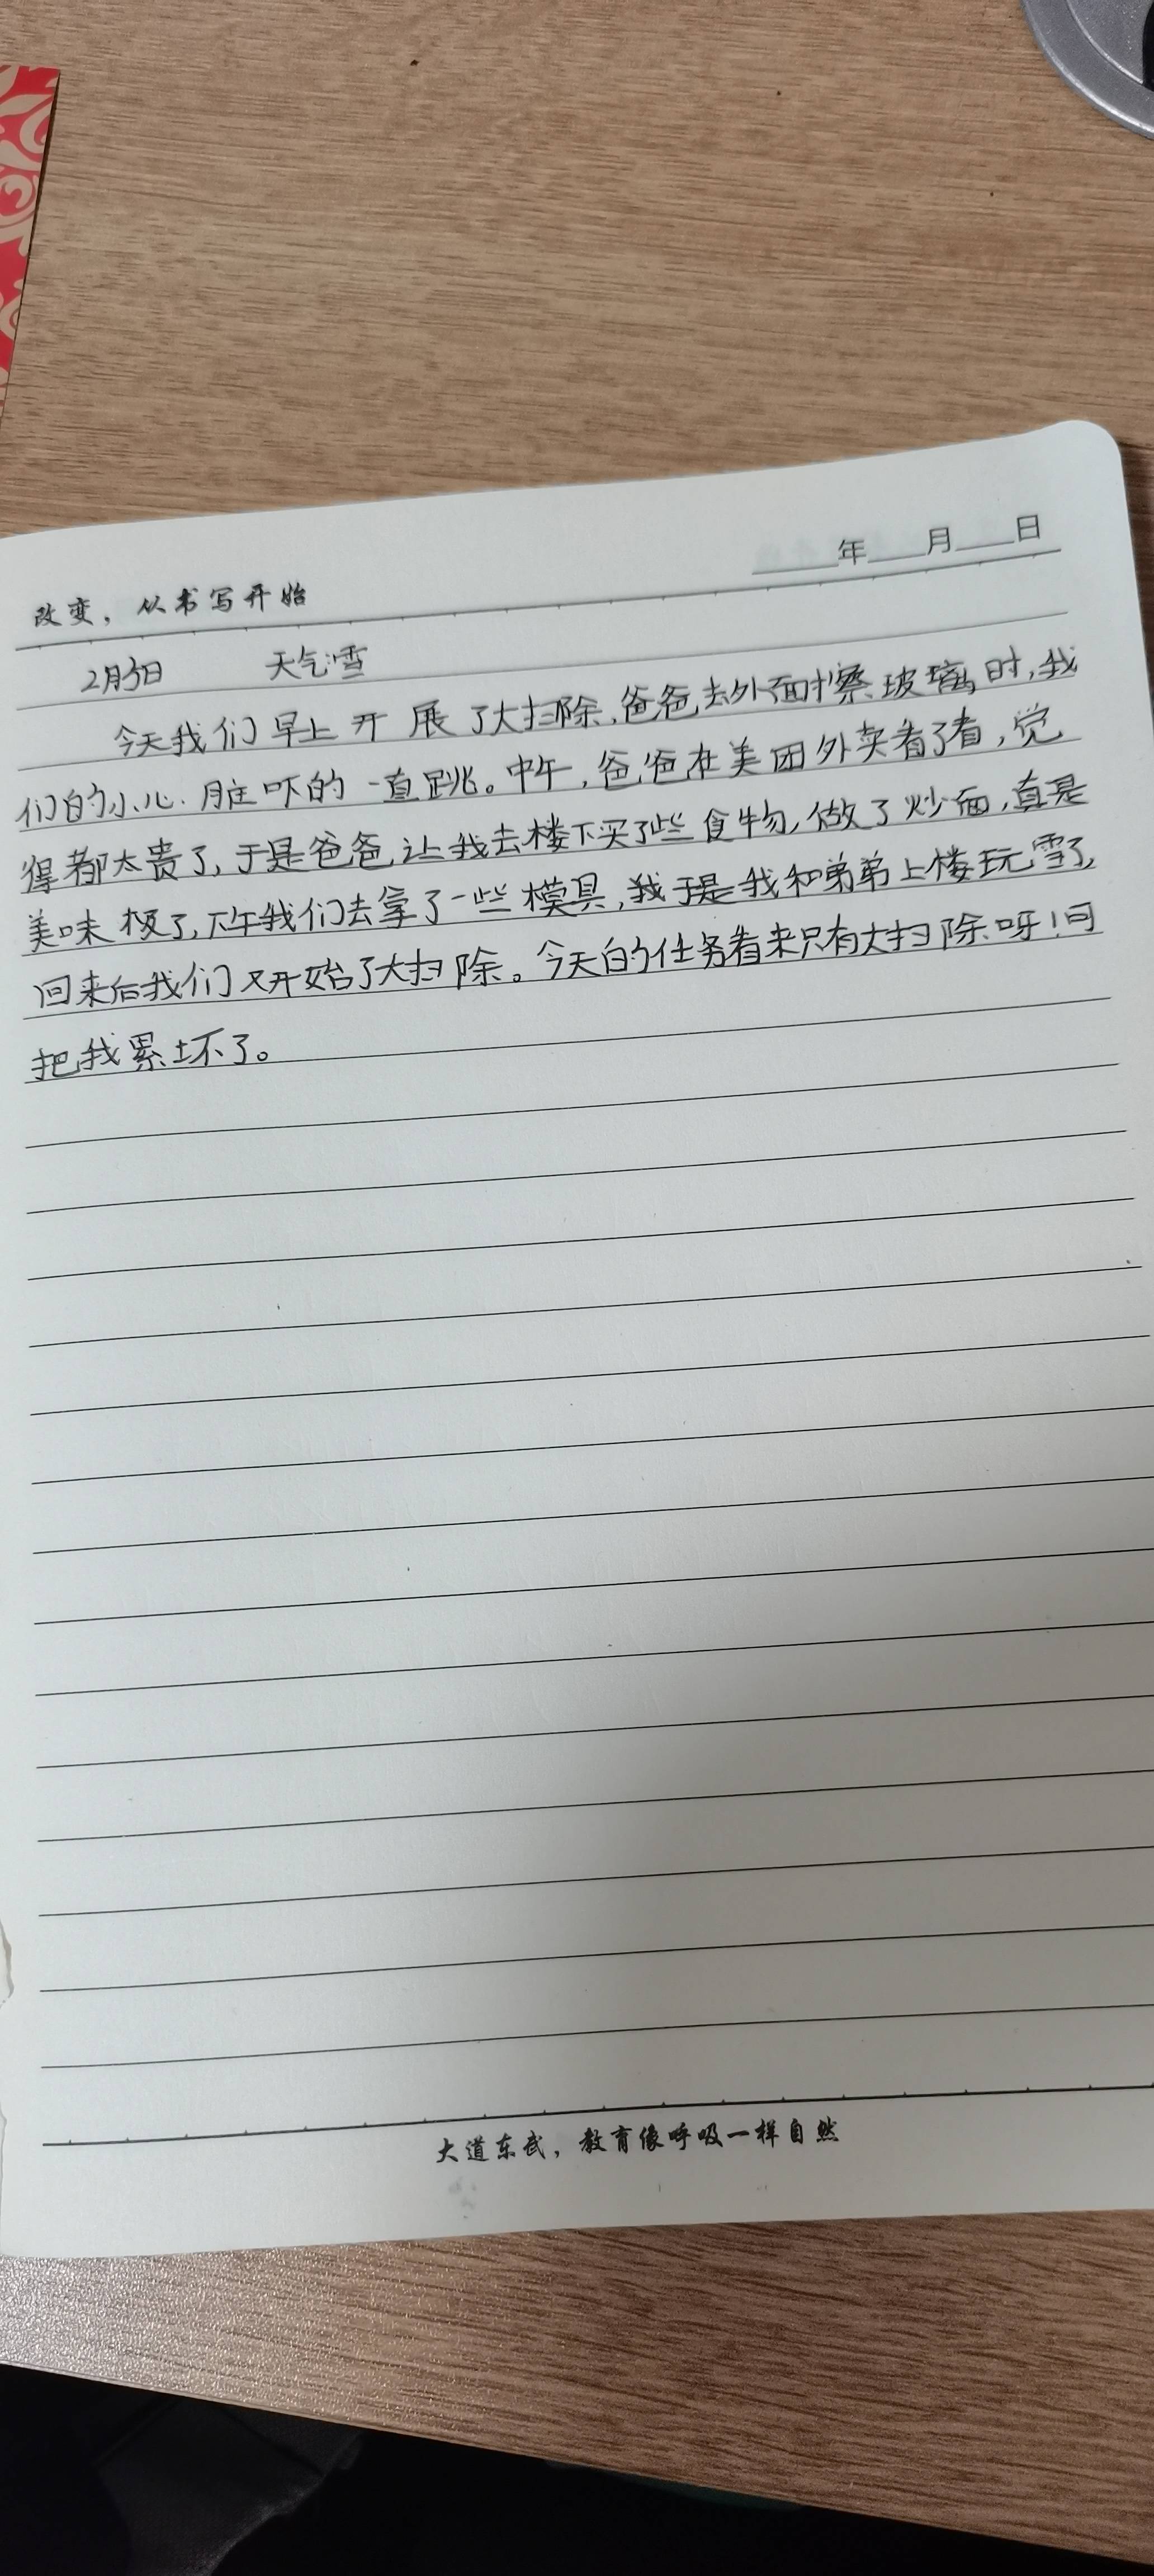 年 月 日
改变，从书写开始
2月5日 天气:雪
今天我们早上开展了大扫除，爸爸去外面擦玻璃时，我
们的小心脏吓的一直跳。中午，爸爸在美团外卖看了看，觉
得都太贵了，于是爸爸让我去楼下买了些食物，做了炒面，真是
美味极了，下午我们去拿了一些模具，我于是我和弟弟上楼玩雪了，
回来后我们又开始了大扫除。今天的任务看来只有大扫除呀！可
把我累坏了。
大道东武，教育像呼吸一样自然